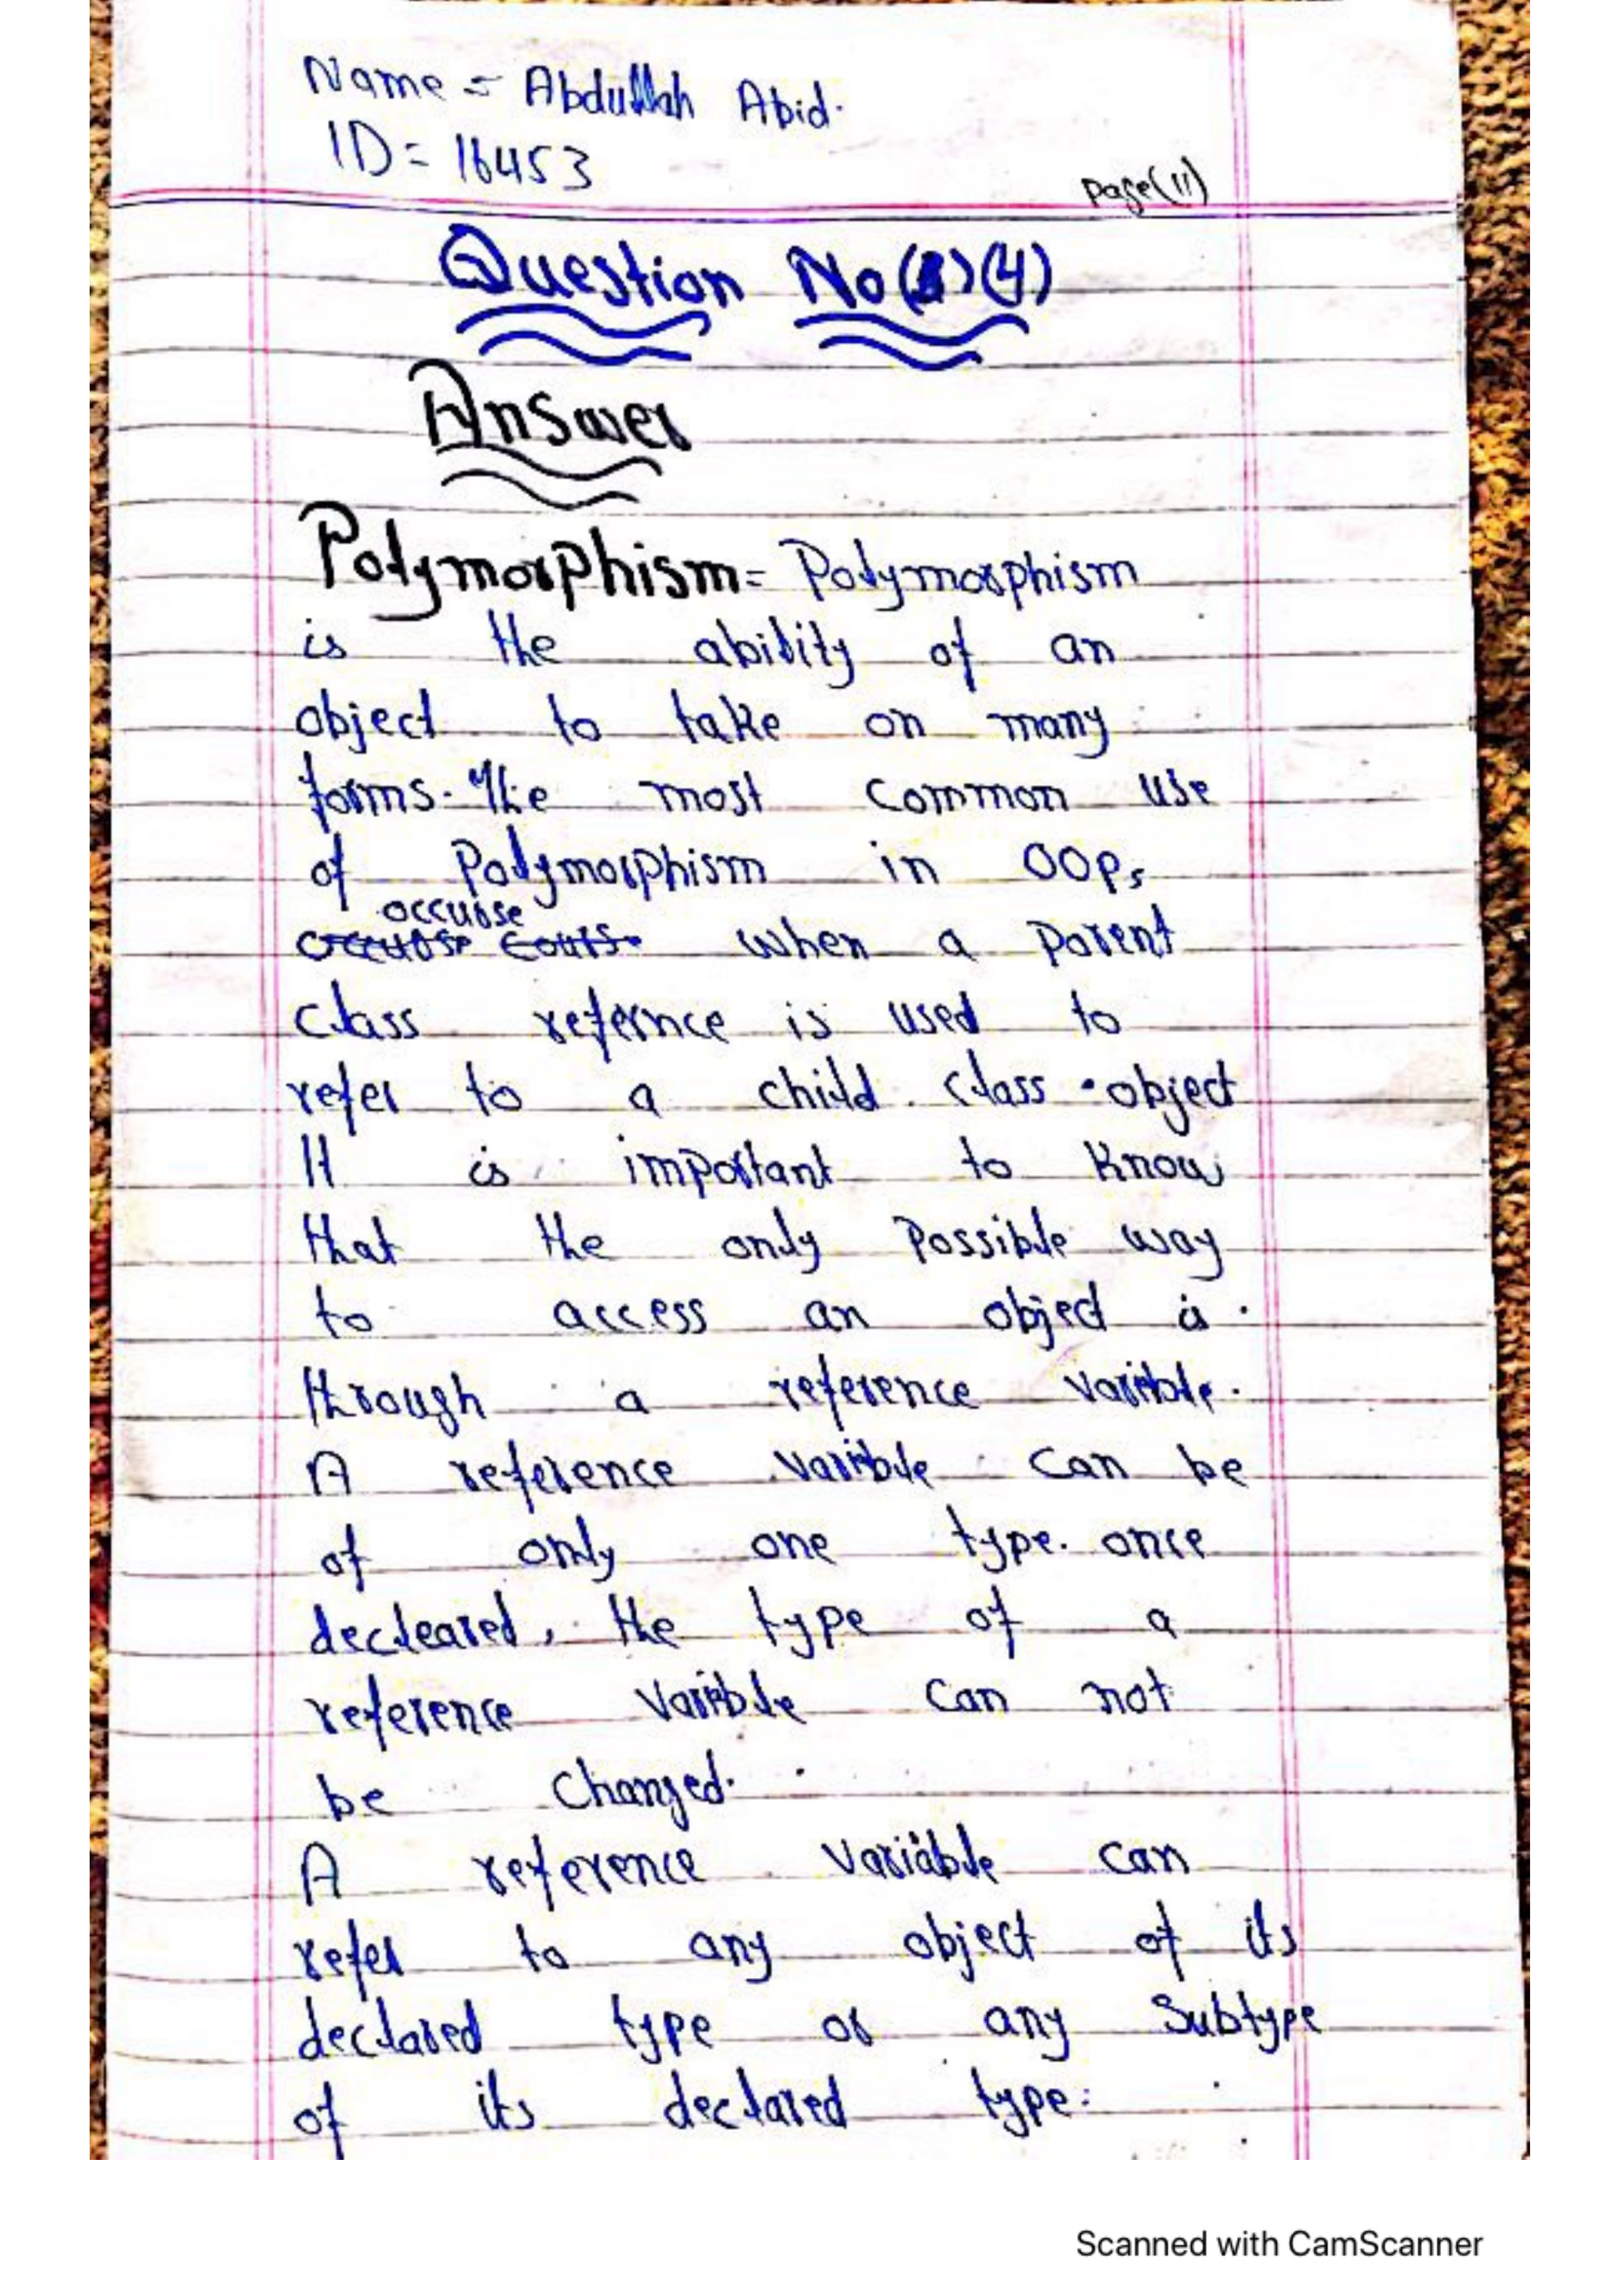 Name = Abdullah Abid.
ID = 16453
page(11)
Question No (4)
Answer
Polymorphism = Polymorphism
is the ability of an
object to take on many
forms. The most common use
of Polymorphism in OOP,
occurse
when a parent
class refernce is used to
refer to a child class object
It is important to know
that the only possible way
to access an object is
through a reference varible.
A reference varible can be
of only one type. once
decleared, the type of a
reference varible can not
be changed.
A reference variable can
refer to any object of its
declared type or any subtype
of its declared type.
Scanned with CamScanner